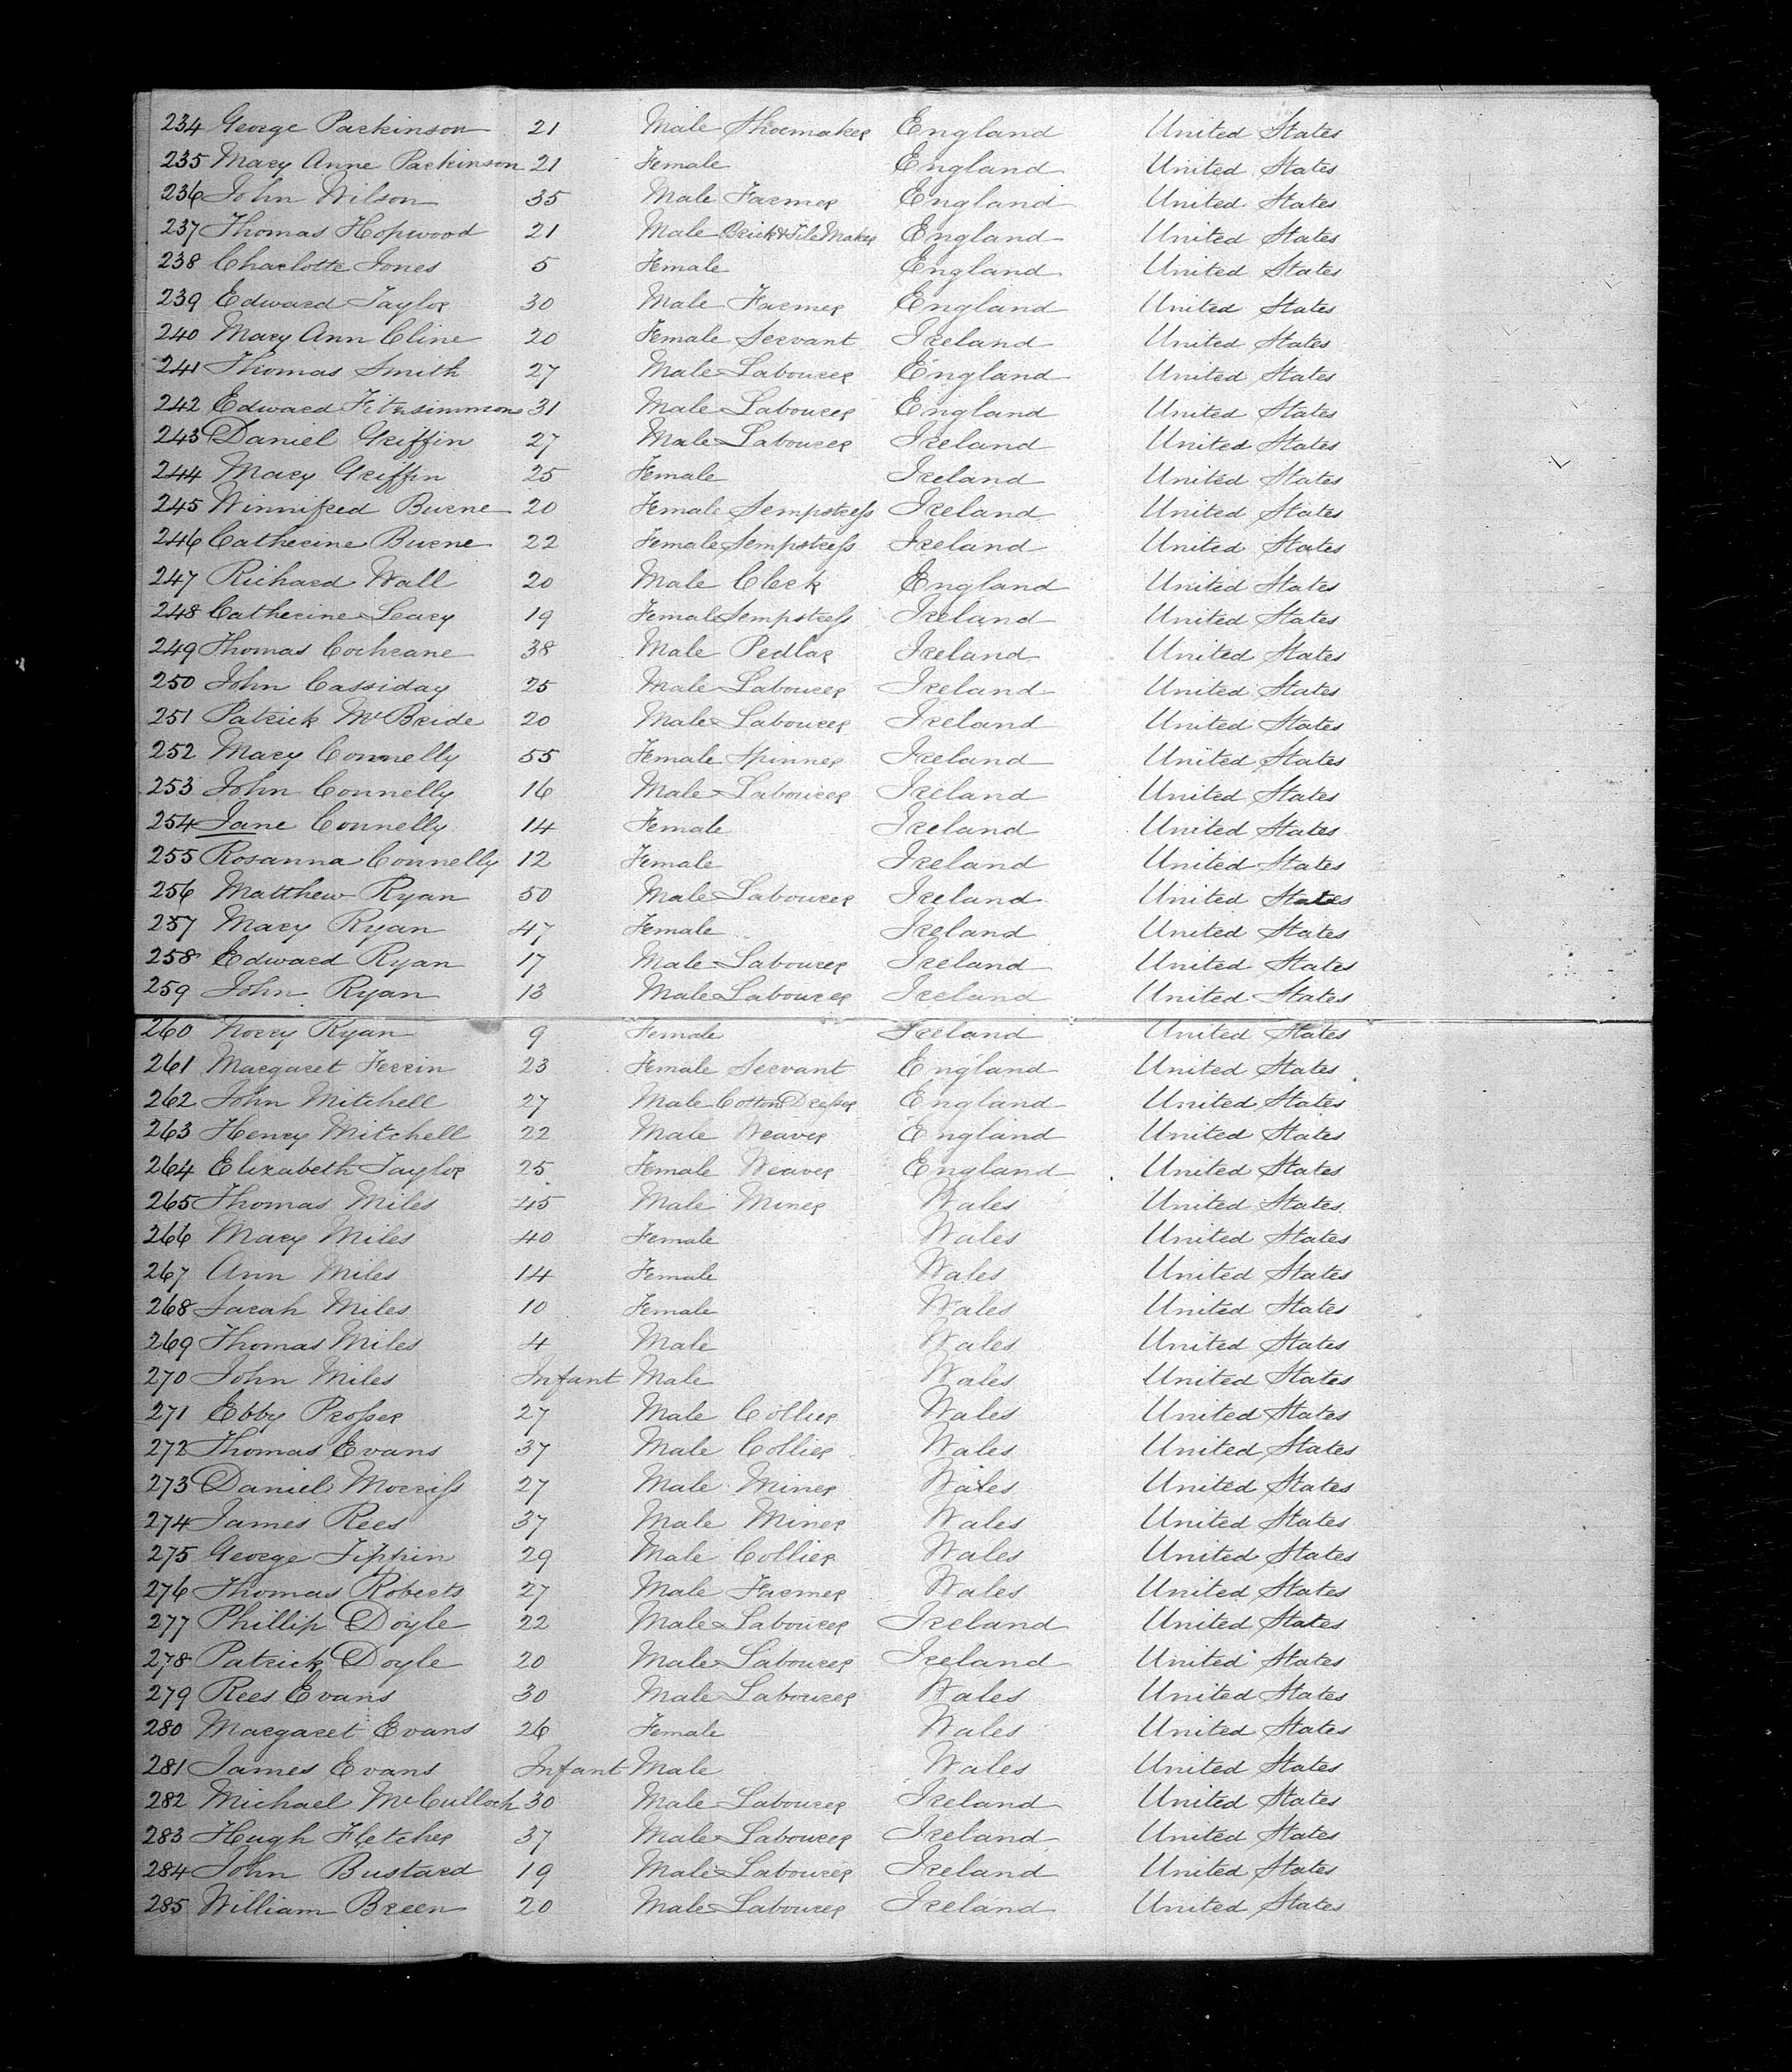 234 George Parkinson 21 Male Shoemaker England United States
235 Mary Anne Parkinson 21 Female England United States
236 John Wilson 35 Male Farmer England United States
237 Thomas Hopwood 21 Male Brick & Tile Maker England United States
238 Charlotte Jones 5 Female England United States
239 Edward Taylor 30 Male Farmer England United States
240 Mary Ann Cline 20 Female Servant Ireland United States
241 Thomas Smith 27 Male Labourer England United States
242 Edward Fitzsimmons 31 Male Labourer England United States
243 Daniel Griffin 27 Male Labourer Ireland United States
244 Mary Griffin 25 Female Ireland United States
245 Winnifred Burne 20 Female Sempstress Ireland United States
246 Catherine Burne 22 Female Sempstress Ireland United States
247 Richard Wall 20 Male Clerk England United States
248 Catherine Leary 19 Female Sempstress Ireland United States
249 Thomas Cochrane 38 Male Pedlar Ireland United States
250 John Cassiday 25 Male Labourer Ireland United States
251 Patrick McBride 20 Male Labourer Ireland United States
252 Mary Connelly 55 Female Spinner Ireland United States
253 John Connelly 16 Male Labourer Ireland United States
254 Jane Connelly 14 Female Ireland United States
255 Rosanna Connelly 12 Female Ireland United States
256 Matthew Ryan 50 Male Labourer Ireland United States
257 Mary Ryan 47 Female Ireland United States
258 Edward Ryan 17 Male Labourer Ireland United States
259 John Ryan 13 Male Labourer Ireland United States
260 Norry Ryan 9 Female Ireland United States
261 Margaret Ferrin 23 Female Servant England United States
262 John Mitchell 27 Male Cotton Dresser England United States
263 Henry Mitchell 22 Male Weaver England United States
264 Elizabeth Taylor 25 Female Weaver England United States
265 Thomas Miles 45 Male Miner Wales United States
266 Mary Miles 40 Female Wales United States
267 Ann Miles 14 Female Wales United States
268 Sarah Miles 10 Female Wales United States
269 Thomas Miles 4 Male Wales United States
270 John Miles Infant Male Wales United States
271 Ebby Prosser 27 Male Collier Wales United States
272 Thomas Evans 37 Male Collier Wales United States
273 Daniel Morriss 27 Male Miner Wales United States
274 James Rees 37 Male Miner Wales United States
275 George Tippin 29 Male Collier Wales United States
276 Thomas Roberts 27 Male Farmer Wales United States
277 Phillip Doyle 22 Male Labourer Ireland United States
278 Patrick Doyle 20 Male Labourer Ireland United States
279 Rees Evans 30 Male Labourer Wales United States
280 Margaret Evans 26 Female Wales United States
281 James Evans Infant Male Wales United States
282 Michael McCulloch 30 Male Labourer Ireland United States
283 Hugh Fletcher 37 Male Labourer Ireland United States
284 John Bustard 19 Male Labourer Ireland United States
285 William Breen 20 Male Labourer Ireland United States